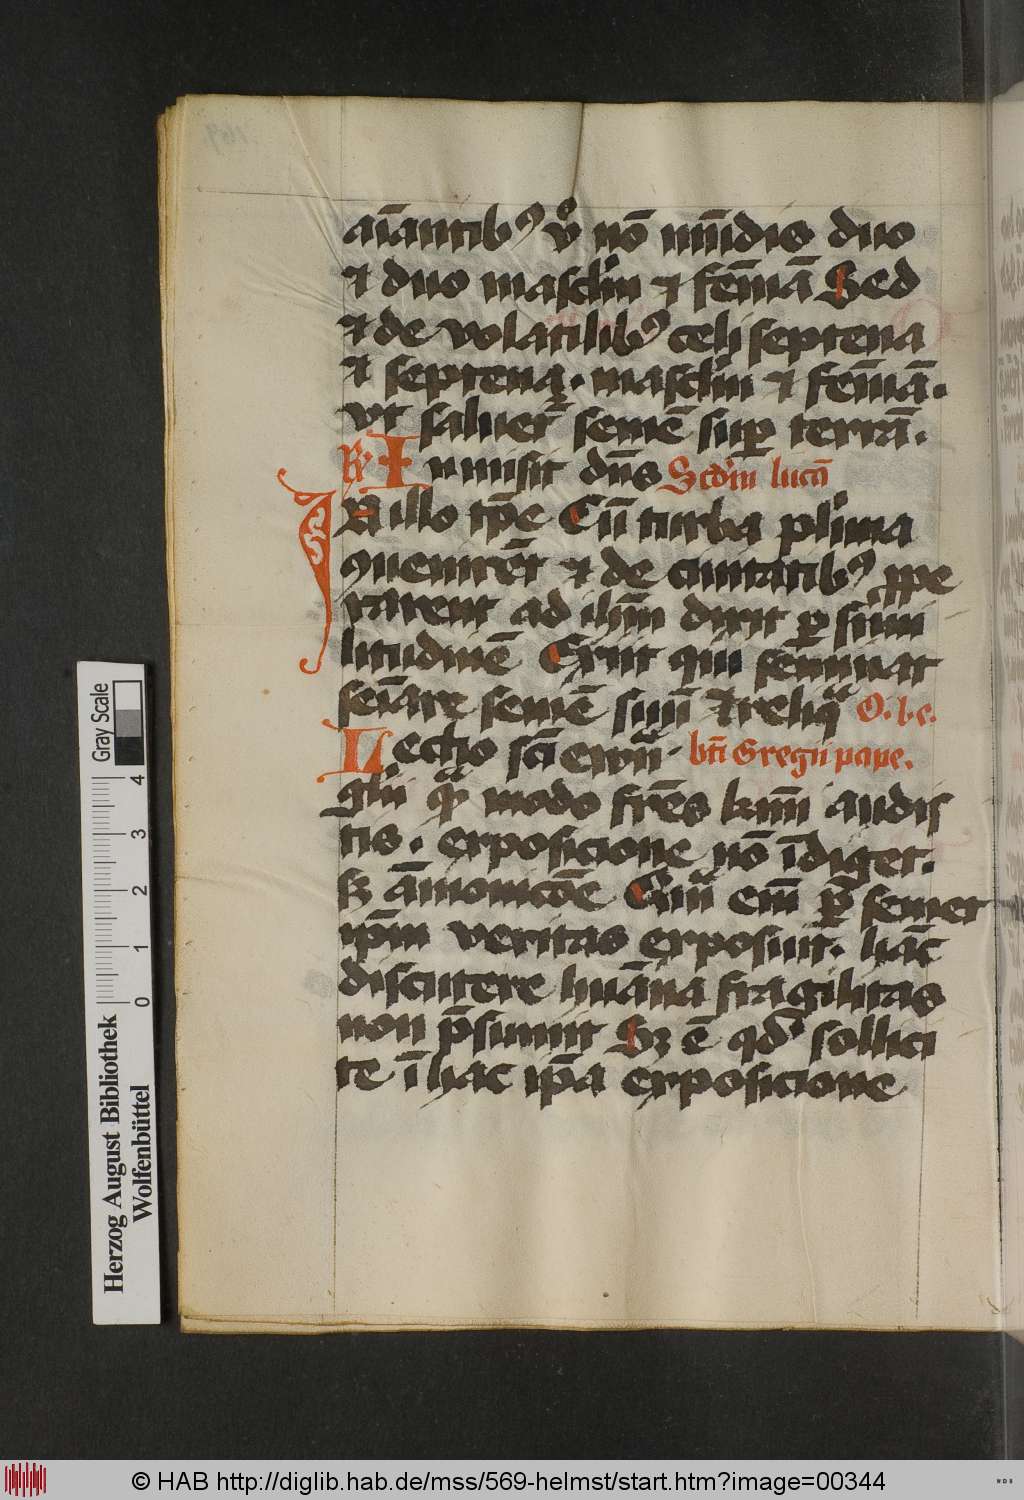 aīantibꝰ v̊ nō mūdis duo
⁊ duo masclīn ⁊ fēmīā Sed
⁊ de volatilibꝰ celi septena
⁊ septena. masclīn ⁊ fēmīā.
vt saluet᷑ semē suꝑ terrā.
R Inmisit dn̄s Scdm̄ lucā
IN illo tp̄e Cū turba plīma
ꝯuenirēt ⁊ de ciuitatibꝰ ꝓpe
rarent ad ihm̄ dixit ꝑ simi
litudinē Exiit qui seminat
semīare semē suū ⁊ reliq̄ O. be.
Lectio sc̄i ewn̄. bt̄i Gregii pape.
q̄ modo fr̄es kmi audis
tis. exposicione nō īdiget.
sꝫ āmonicōe Quā em̄ ꝑ semet
ip̄m veritas exposuit. hāc
discutere huāna fragilitas
non p̄sumit Sꝫ ē qd̓ sollici
te ī hac ip̄a exposicione
Herzog August Bibliothek
Wolfenbüttel
Gray Scale
0 1 2 3 4
© HAB http://diglib.hab.de/mss/569-helmst/start.htm?image=00344